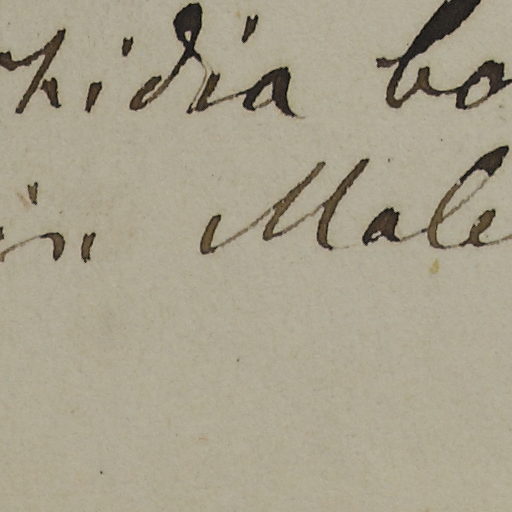 hidia bo
in Male